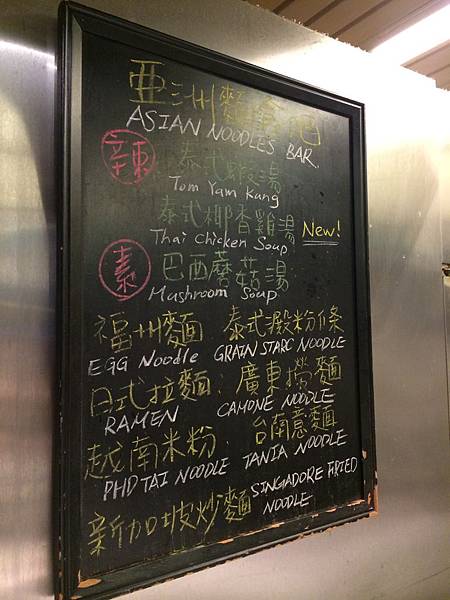 亞洲麵食吧
ASIAN NOODLES BAR
辣 泰式蝦湯
Tom Yam Kang
泰式椰香雞湯 New!
Thai Chicken Soup
素 巴西蘑菇湯
Mushroom Soup
福州麵 泰式澱粉條
EGG Noodle GRAIN STARC NOODLE
日式拉麵 廣東撈麵
RAMEN CAMONE NOODLE
越南米粉 台南意麵
PHD TAI NOODLE TANIA NOODLE
新加坡炒麵 SINGADORE FRIED
NOODLE